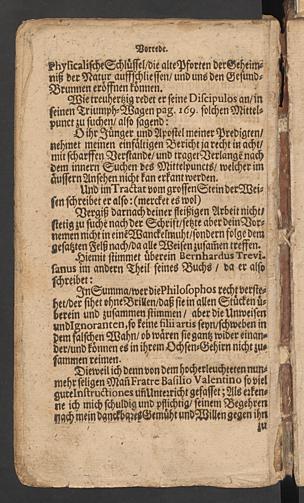 Vorrede.
Physicalische Schlüssel/die alte Pforten der Geheim-
niß der Natur auffschliessen/ und uns den Gesund-
Brunnen eröffnen können.
Wie treuhertzig redet er seine Discipulos an/in
seinen Triumph-Wagen pag. 169. solchen Mittel-
punct zu suchen/ also sagend:
O ihr Jünger und Apostel meiner Predigten/
nehmet meinen einfältigen Bericht ja recht in acht/
mit scharffen Verstande/ und traget Verlangē nach
dem innern Suchen des Mittelpuncts/ welcher im
äussern Ansehen nicht kan erkant werden.
Und im Tractat vom grossen Stein der Wei-
sen schreibet er also: (mercket es wol)
Vergiß darnach deiner fleißigen Arbeit nicht/
stetig zu suche nach der Schrift/ setze aber dein Vor-
nemen nicht in eine Wanckelmuht/sondern folge dem
gesatzten Felß nach/da alle Weisen zusam̄en treffen.
Hiemit stimmet überein Bernhardus Trevi-
sanus im andern Theil seines Buchs/ da er also
schreibet:
In Sum̄a/wer die Philosophos recht verste-
het/der sihet ohne Brillen/daß sie in allen Stücken ü-
berein und zusammen stimmen/ aber die Unweisen
und Ignoranten, so keine filii artis seyn/schweben in
dem falschen Wahn/ ob wären sie gantz wider einan-
der/und können es in ihrem Ochsen-Gehirn nicht zu-
sammen reimen.
Dieweil ich denn von dem hocherleuchteten nun-
mehr seligen Mañ Fratre Basilio Valentino so viel
gute Instructiones uñ Unterricht gefasset; Als erken-
ne ich mich schuldig und pflichtig/ seinem Begehren
nach mein danckbares Gemüht und Willen gegen ihn
zu